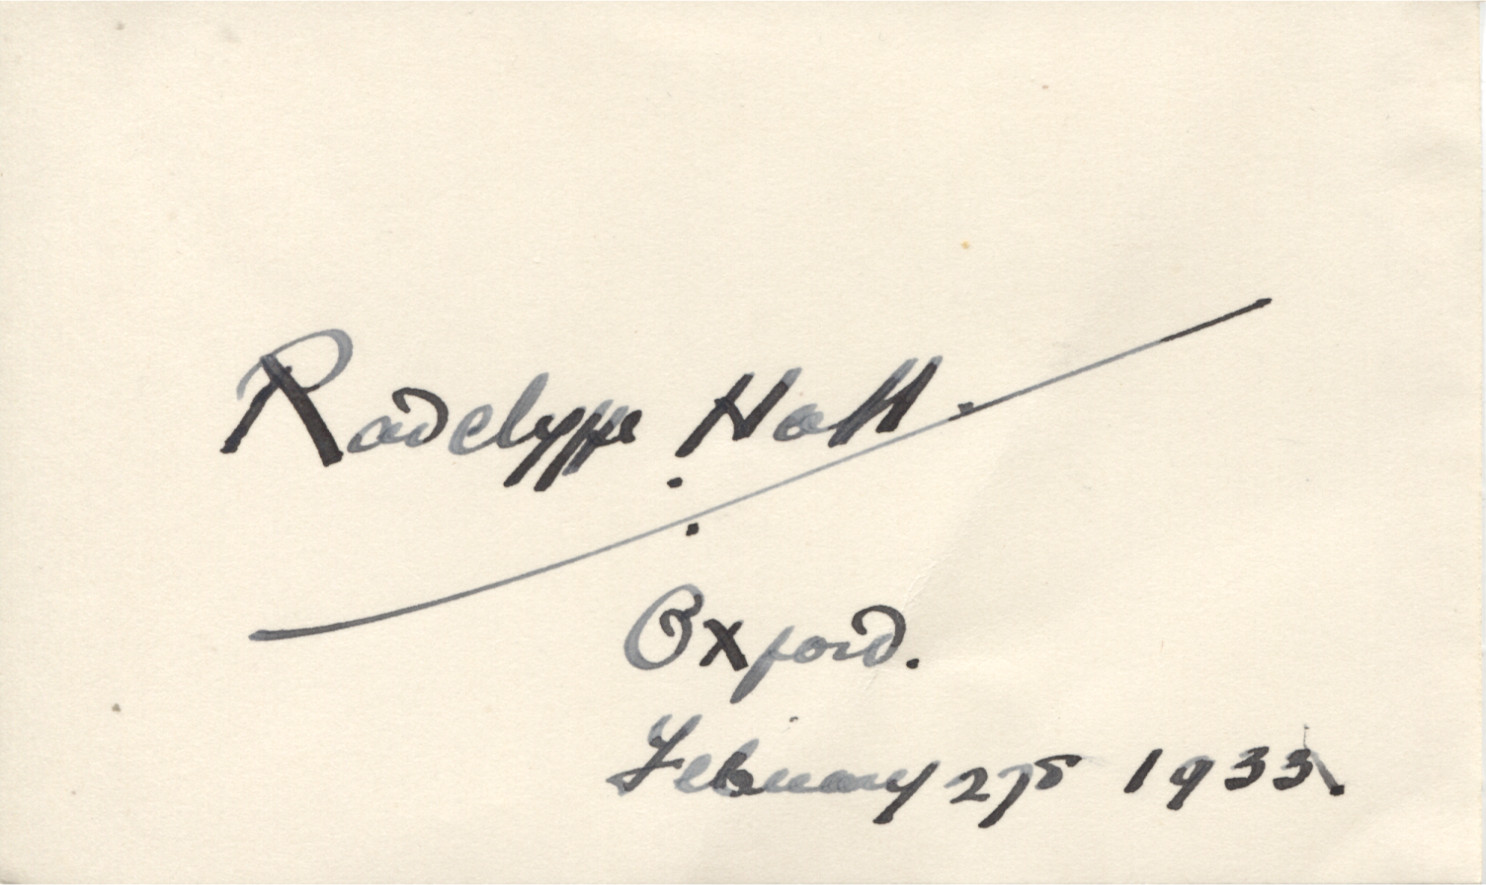 Radclyffe Hall.
Oxford.
February 27th 1933.